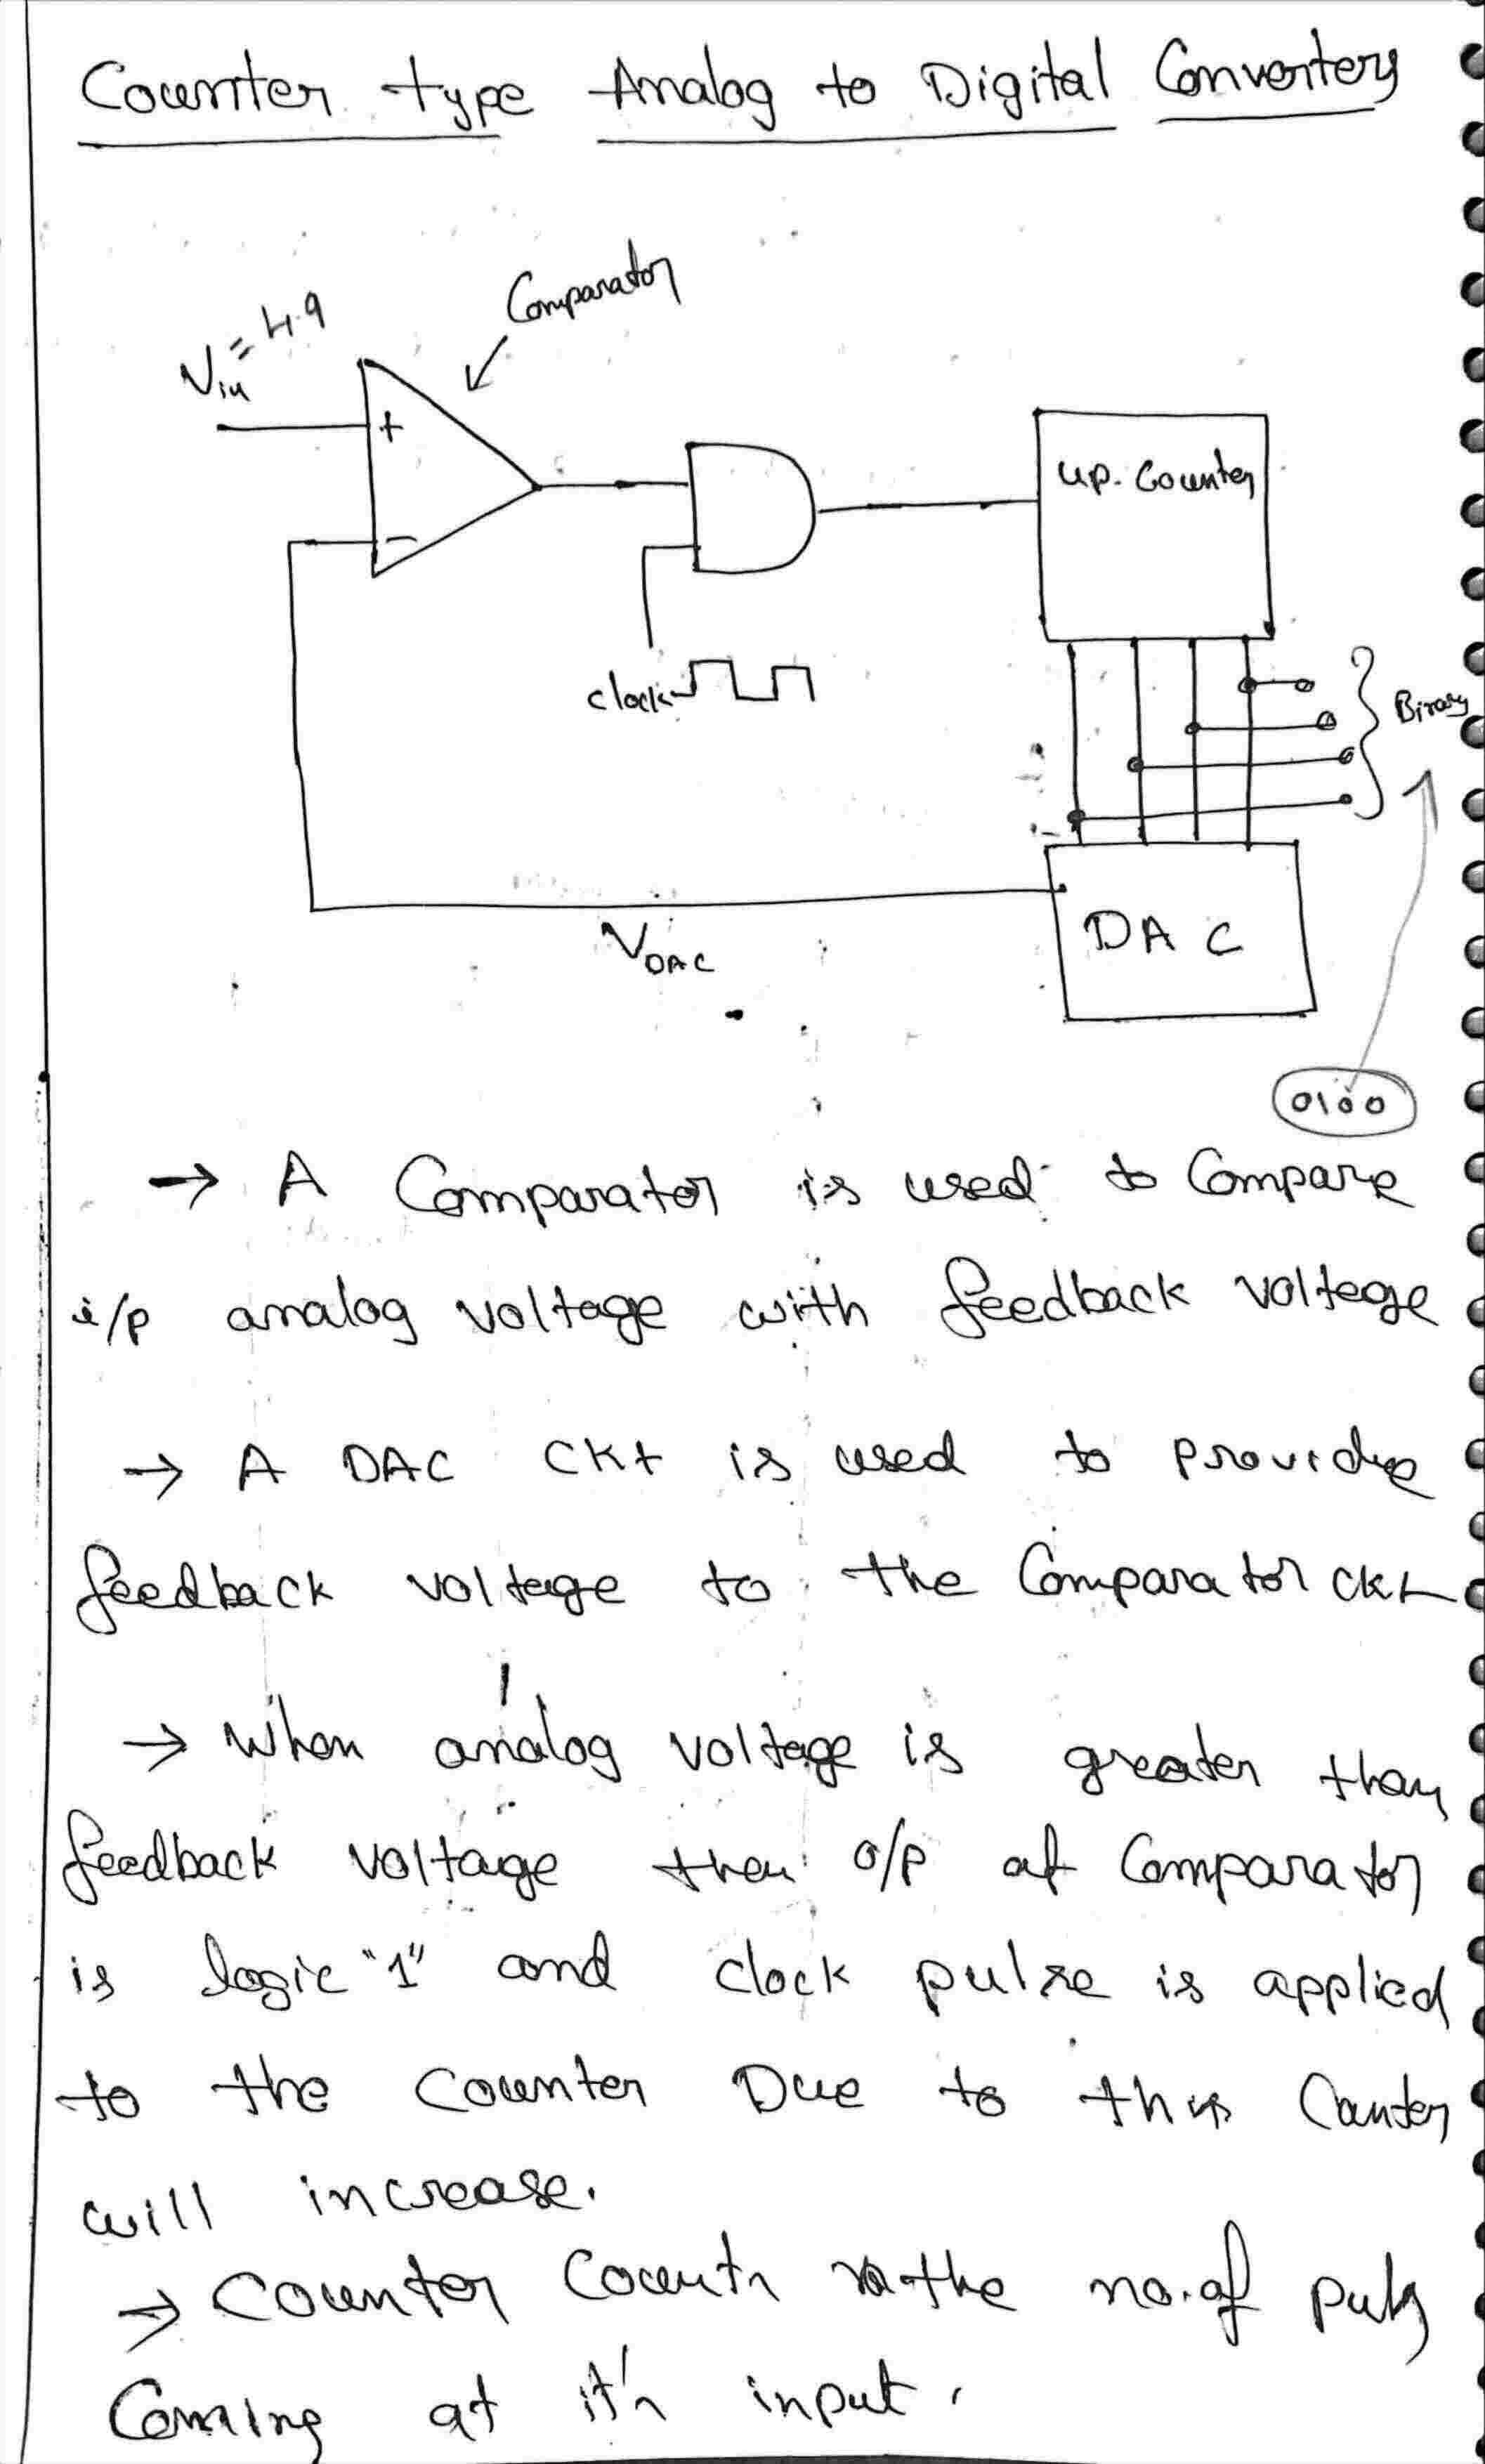 Counter type Analog to Digital Converters
Comparator
Vin = 4.9
+
up. Counter
-
clock
Binary
DAC
VDAC
0100
→ A Comparator is used to Compare
i/p analog voltage with feedback voltege
→ A DAC CKt is used to provide
feedback voltege to the Comparator ckt
→ When analog voltage is greater than
feedback voltage then o/p of Comparator
is logic "1" and clock pulse is applied
to the Counter Due to this Counter
will increase.
→ Counter Counts the no. of pulse
Coming at it's input.